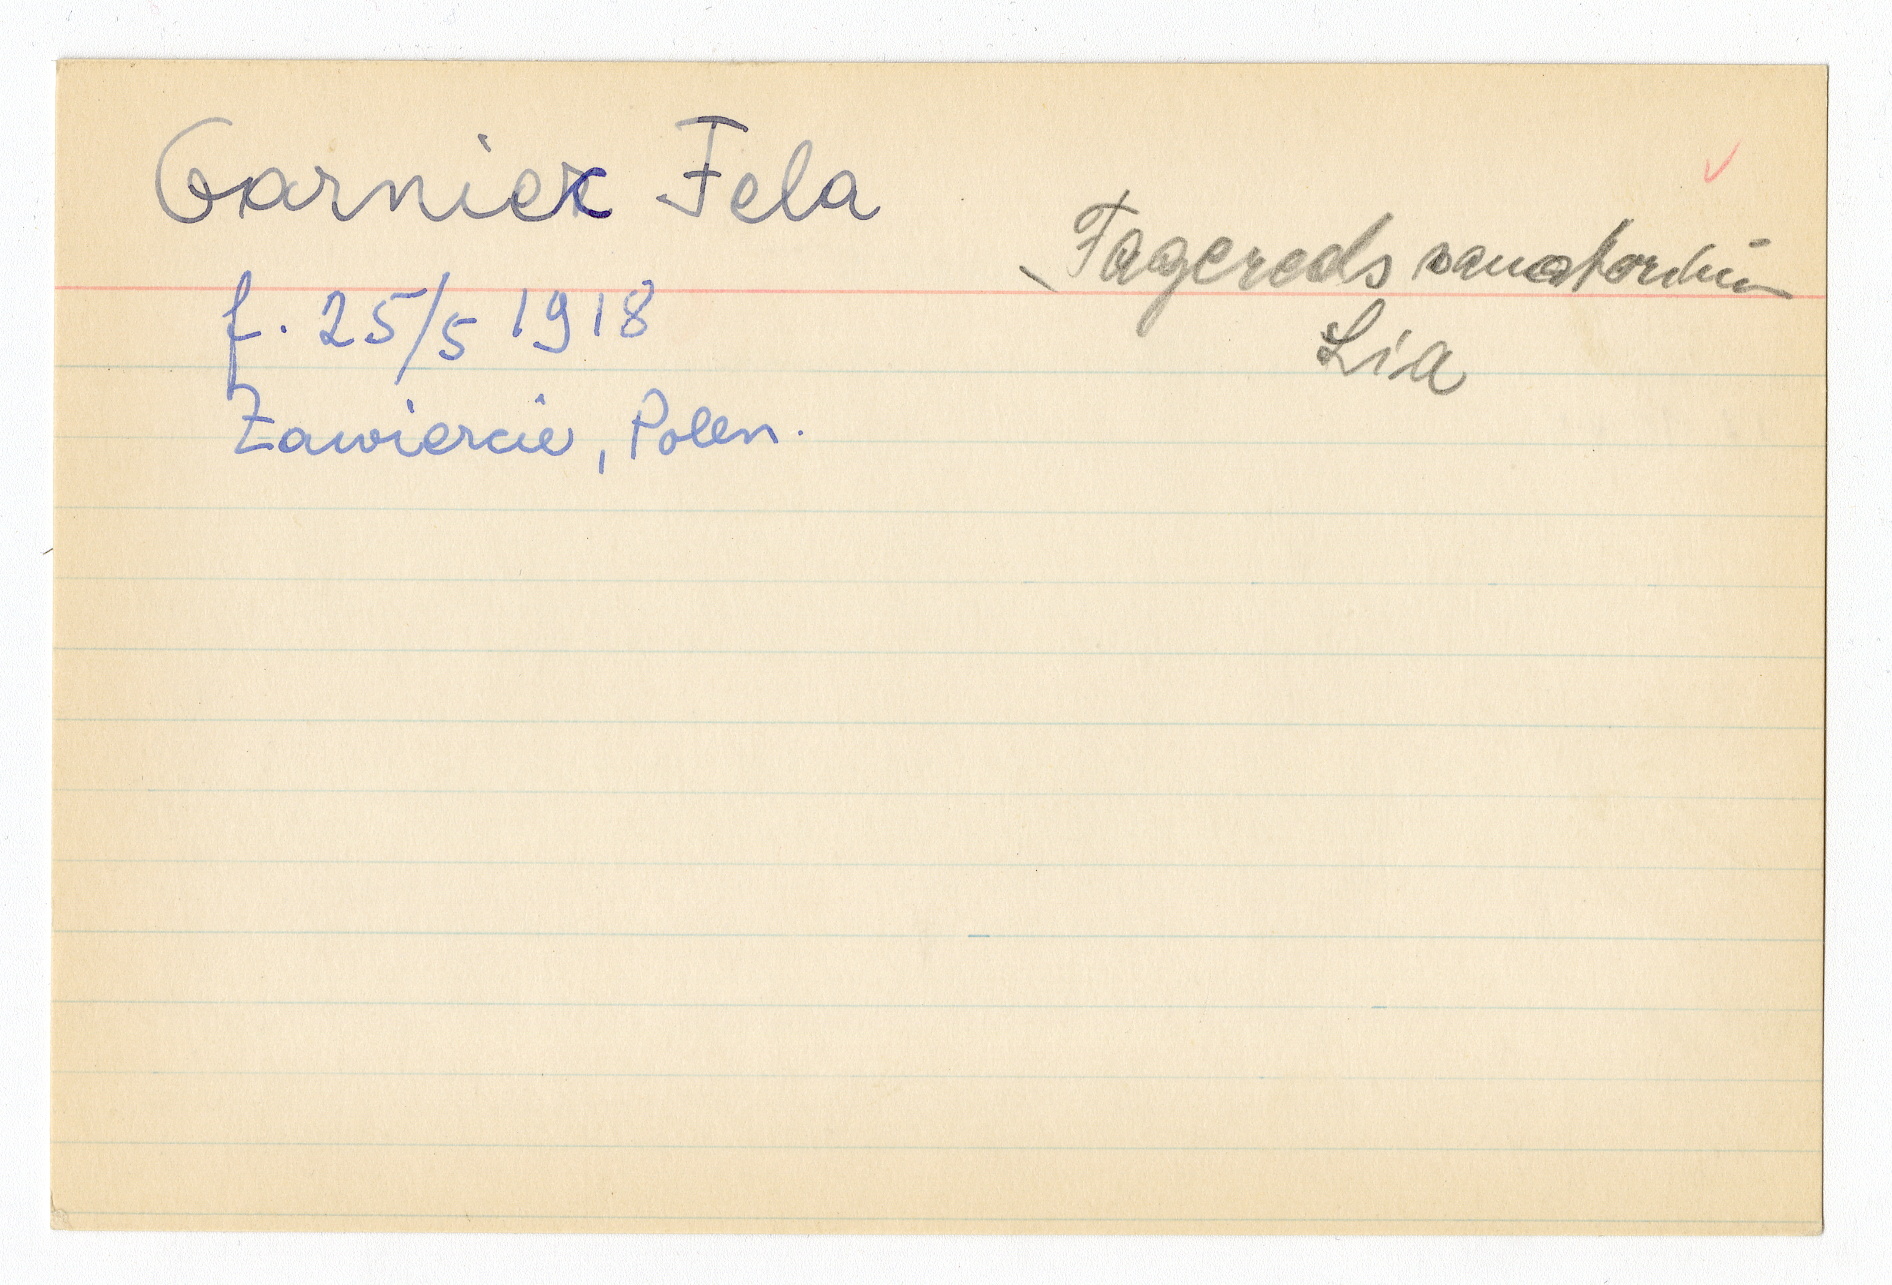 Garniek Fela
Fagereds sanatorium
Lia
f. 25/5 1918
Zawiercie, Polen.